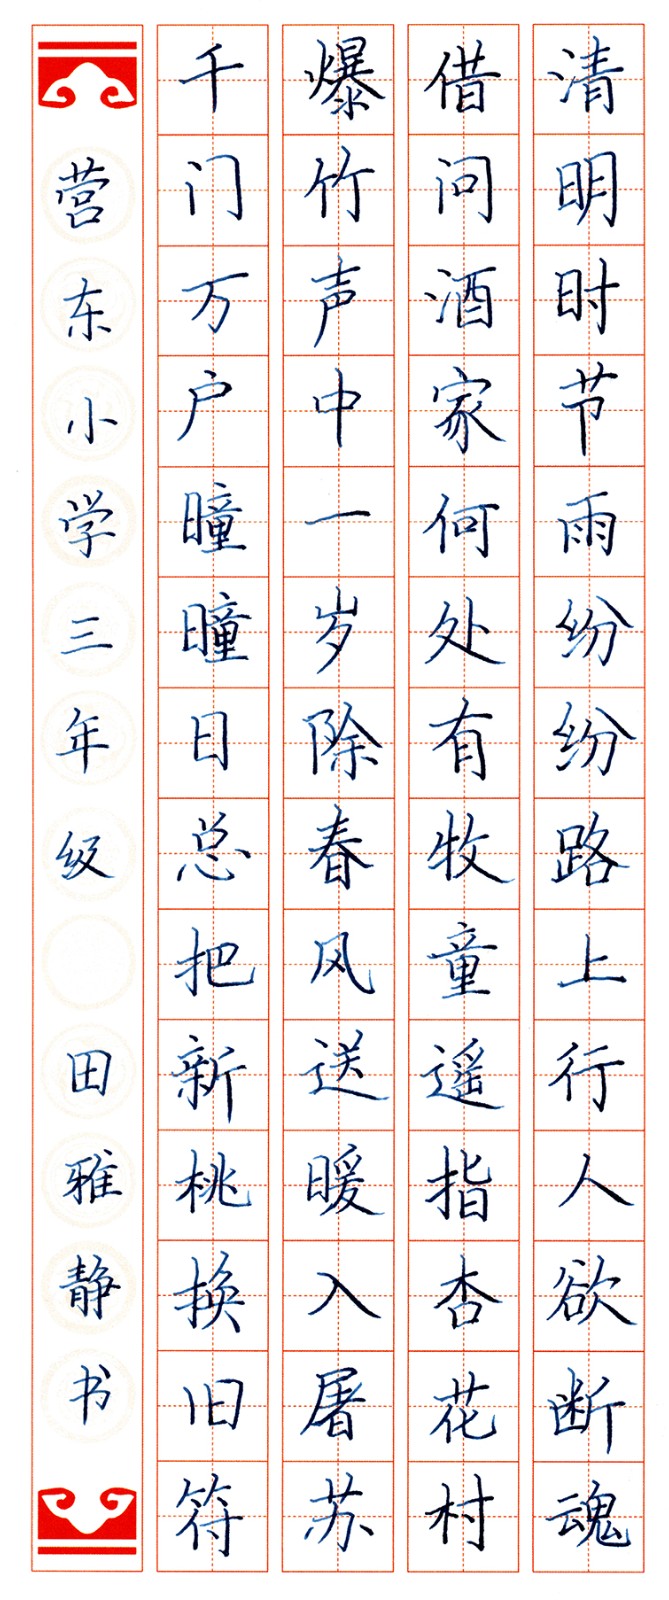 清明时节雨纷纷路上行人欲断魂
借问酒家何处有牧童遥指杏花村
爆竹声中一岁除春风送暖入屠苏
千门万户曈曈日总把新桃换旧符
营东小学三年级 田雅静书